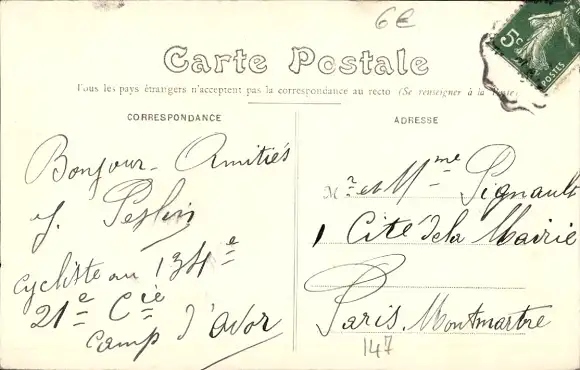 6€
5c
POSTES
Carte Postale
Tous les pays étrangers n'acceptent pas la correspondance au recto (Se renseigner à la Poste)
CORRESPONDANCE
ADRESSE
Bonjour - Amitiés
J.
cycliste au 134e
21e Cie
Camp d'avor
Mr et Mme Pignault
1 Cité de la Mairie
Paris. Montmartre
147